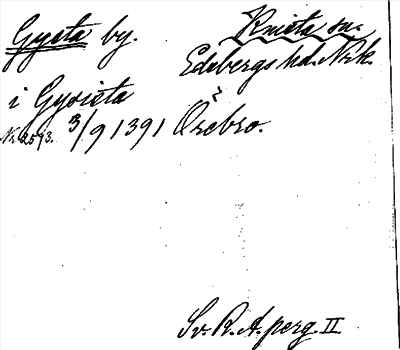 Gysta by. Knista sn.
Edsbergs hd. Nrk.
i Gysieta
Nr 2593. 3/9 1391 Örebro.
Sv. R. A. perg. II